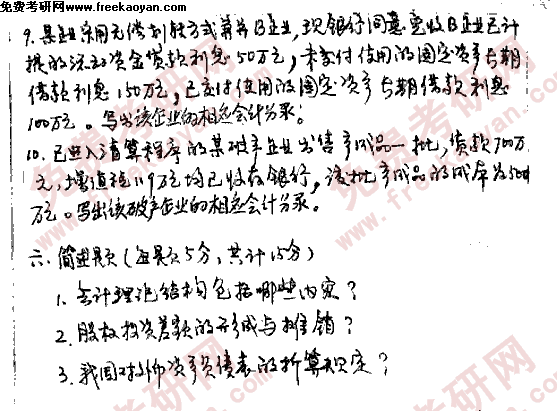 免费考研网
www.freekaoyan.com
9. 某企业采用无偿划转方式兼并B企业,现银行同意免收B企业已计
提的流动资金贷款利息50万元,未交付使用的固定资产长期
借款利息150万元,已交付使用的固定资产长期借款利息
100万元。写出该企业的相应会计分录。
10. 已进入清算程序的某破产企业出售产成品一批,货款700万
元,增值税119万元均已收存银行,该批产成品的成本为500
万元。写出该破产企业的相应会计分录。
六. 简述题(每题5分,共计15分)
1. 会计理论结构包括哪些内容?
2. 股权投资差额的形成与摊销?
3. 我国对外币资产负债表的折算规定?